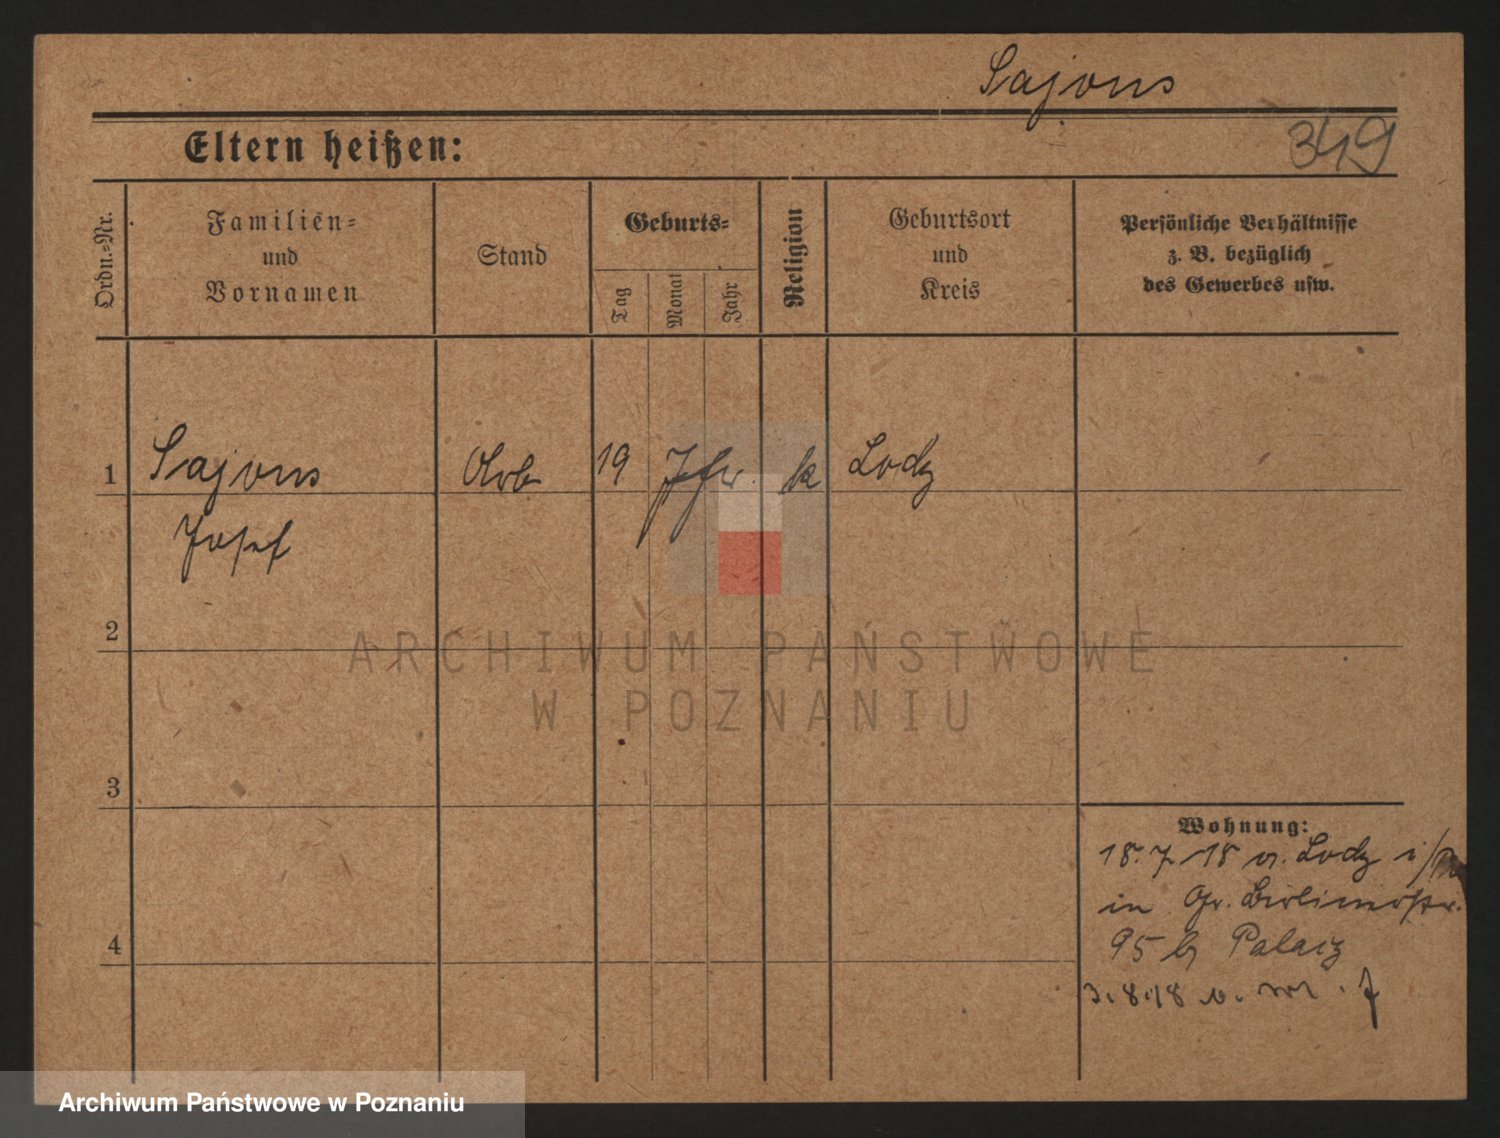 Sajons
349
Eltern heißen:
Ordn.=Nr.
Familien=
und
Vornamen
Stand
Geburts=
Tag
Monat
Jahr
Religion
Geburtsort
und
Kreis
Persönliche Verhältnisse
z. B. bezüglich
des Gewerbes usw.
1
Sajons
Arb
19
Jhr
k
Lodz
Josef
2
3
4
ARCHIWUM PAŃSTWOWE
W POZNANIU
Wohnung:
18.7.18 v. Lodz
in Gr. Berlinerstr.
95 b Palacz
3.8.18 v.
Archiwum Państwowe w Poznaniu